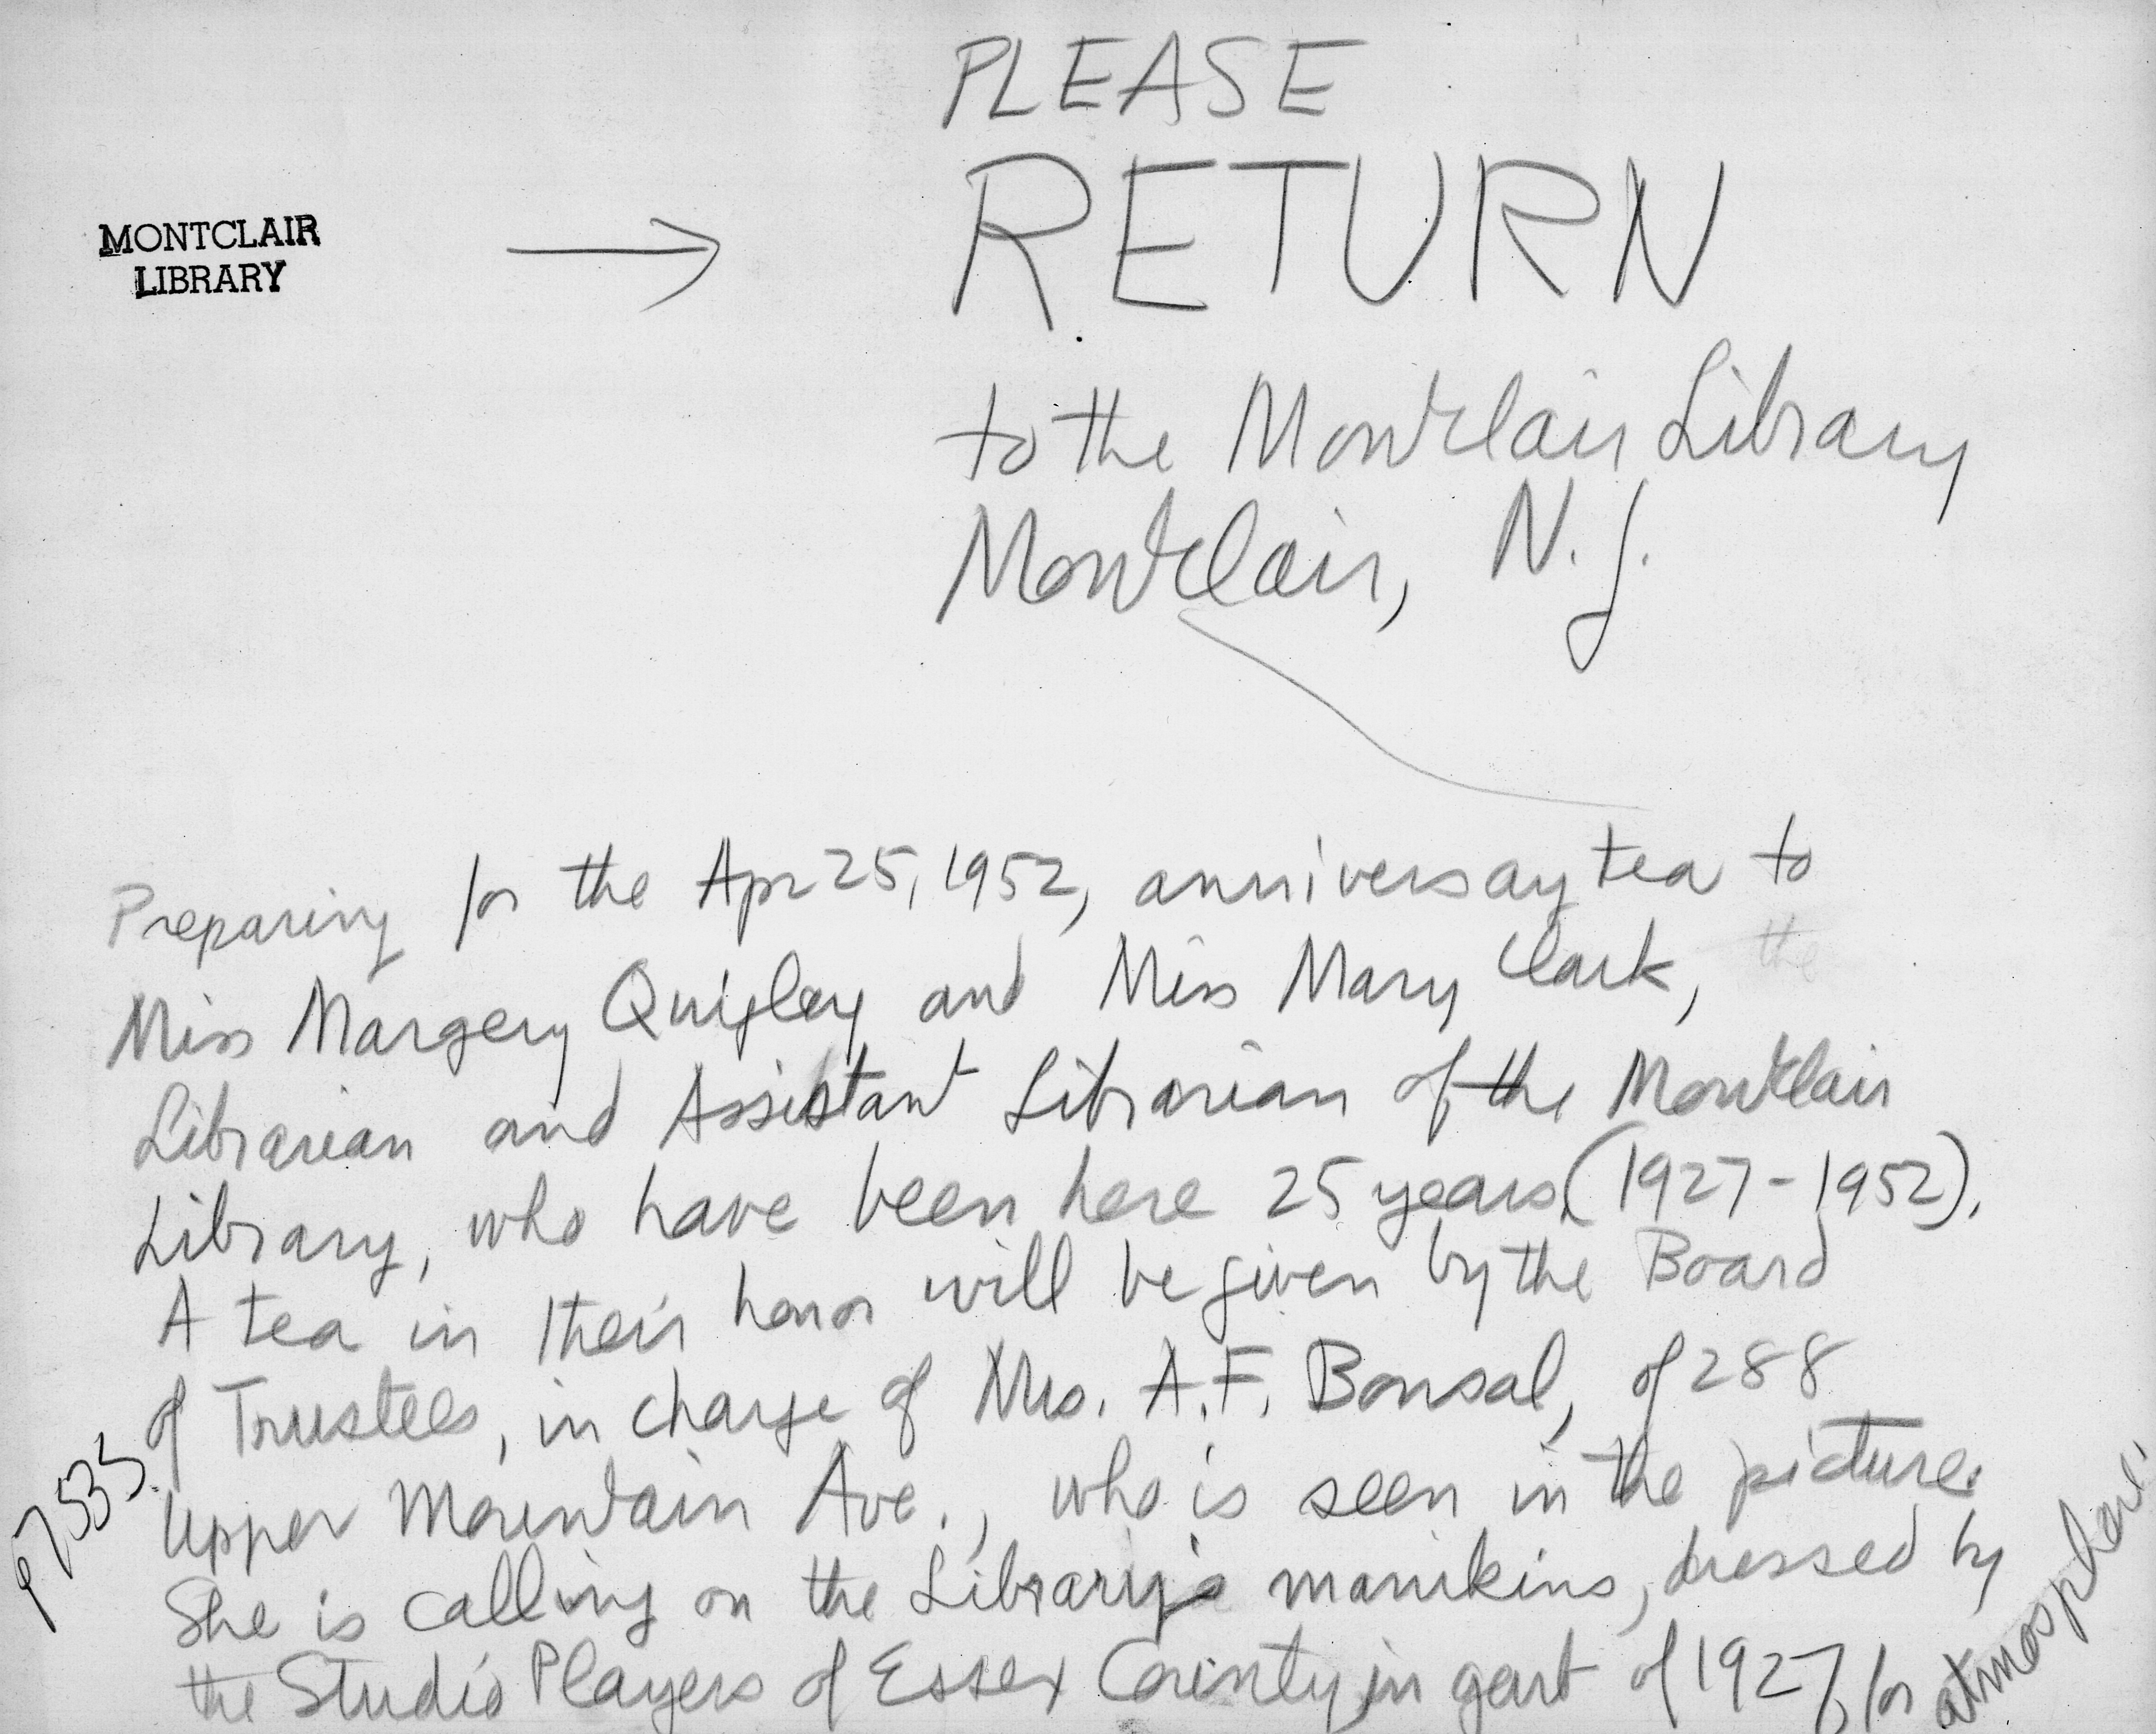 PLEASE
RETURN
MONTCLAIR
LIBRARY
to the Montclair Library
Montclair, N.J.
Preparing for the Apr 25, 1952, anniversay tea to
Miss Margery Quigley and Miss Mary Clark, the
Librarian and Assistant Librarian of the Montclair
Library, who have been here 25 years (1927-1952).
A tea in their honor will be given by the Board
of Trustees, in charge of Mrs. A.F. Bonsal, of 288
Upper Mountain Ave., who is seen in the picture.
She is calling on the Library's manikins, dressed by
the Studio Players of Essex County, in garb of 1927, for
atmosphere.